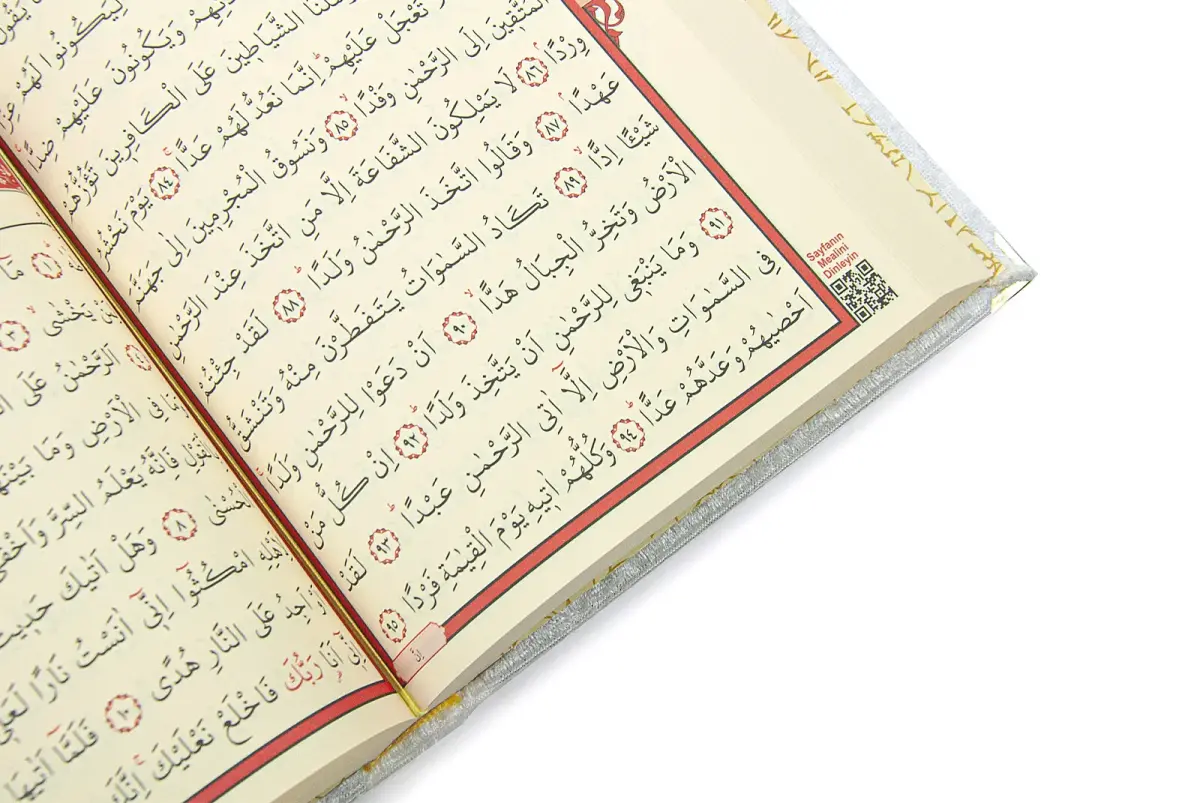 يَقُولُ
لِيَكُونُوا لَهُمْ عِزًّا
وَيَكُونُونَ عَلَيْهِمْ ضِدًّا
الشَّيَاطِينَ عَلَى الْكَافِرِينَ تَؤُزُّهُمْ
تَعْجَلْ عَلَيْهِمْ اِنَّمَا نَعُدُّ لَهُمْ عَدًّا ٨٤ يَوْمَ نَحْشُرُ
الْمُتَّقِينَ اِلَى الرَّحْمٰنِ وَفْدًا ٨٥ وَنَسُوقُ الْمُجْرِمِينَ اِلٰى جَهَنَّمَ
وِرْدًا ٨٦ لَا يَمْلِكُونَ الشَّفَاعَةَ اِلَّا مَنِ اتَّخَذَ عِنْدَ الرَّحْمٰنِ
عَهْدًا ٨٧ وَقَالُوا اتَّخَذَ الرَّحْمٰنُ وَلَدًا ٨٨ لَقَدْ جِئْتُمْ
شَيْـًٔا اِدًّا ٨٩ تَكَادُ السَّمٰوَاتُ يَتَفَطَّرْنَ مِنْهُ وَتَنْشَقُّ
الْاَرْضُ وَتَخِرُّ الْجِبَالُ هَدًّا ٩٠ اَنْ دَعَوْا لِلرَّحْمٰنِ وَلَدًا
٩١ وَمَا يَنْبَغِي لِلرَّحْمٰنِ اَنْ يَتَّخِذَ وَلَدًا ٩٢ اِنْ كُلُّ مَنْ
فِي السَّمٰوَاتِ وَالْاَرْضِ اِلَّٓا اٰتِي الرَّحْمٰنِ عَبْدًا ٩٣ لَقَدْ
اَحْصٰيهُمْ وَعَدَّهُمْ عَدًّا ٩٤ وَكُلُّهُمْ اٰتِيهِ يَوْمَ الْقِيٰمَةِ فَرْدًا ٩٥
اِنَّ
Sayfanın
Mealini
Dinleyin
١ مَٓا
يَخْشٰى ٣
اَلرَّحْمٰنُ عَلَى
فِي الْاَرْضِ وَمَا بَيْنَهُمَا
فَاِنَّهُ يَعْلَمُ السِّرَّ وَاَخْفٰى
الْحُسْنٰى ٨ وَهَلْ اَتٰيكَ حَدِيثُ
امْكُثُٓوا اِنِّٓي اٰنَسْتُ نَارًا لَعَلِّٓي
عَلَى النَّارِ هُدًى ١٠ فَلَمَّٓا اَتٰيهَا
اَنَا رَبُّكَ فَاخْلَعْ نَعْلَيْكَ اِنَّكَ